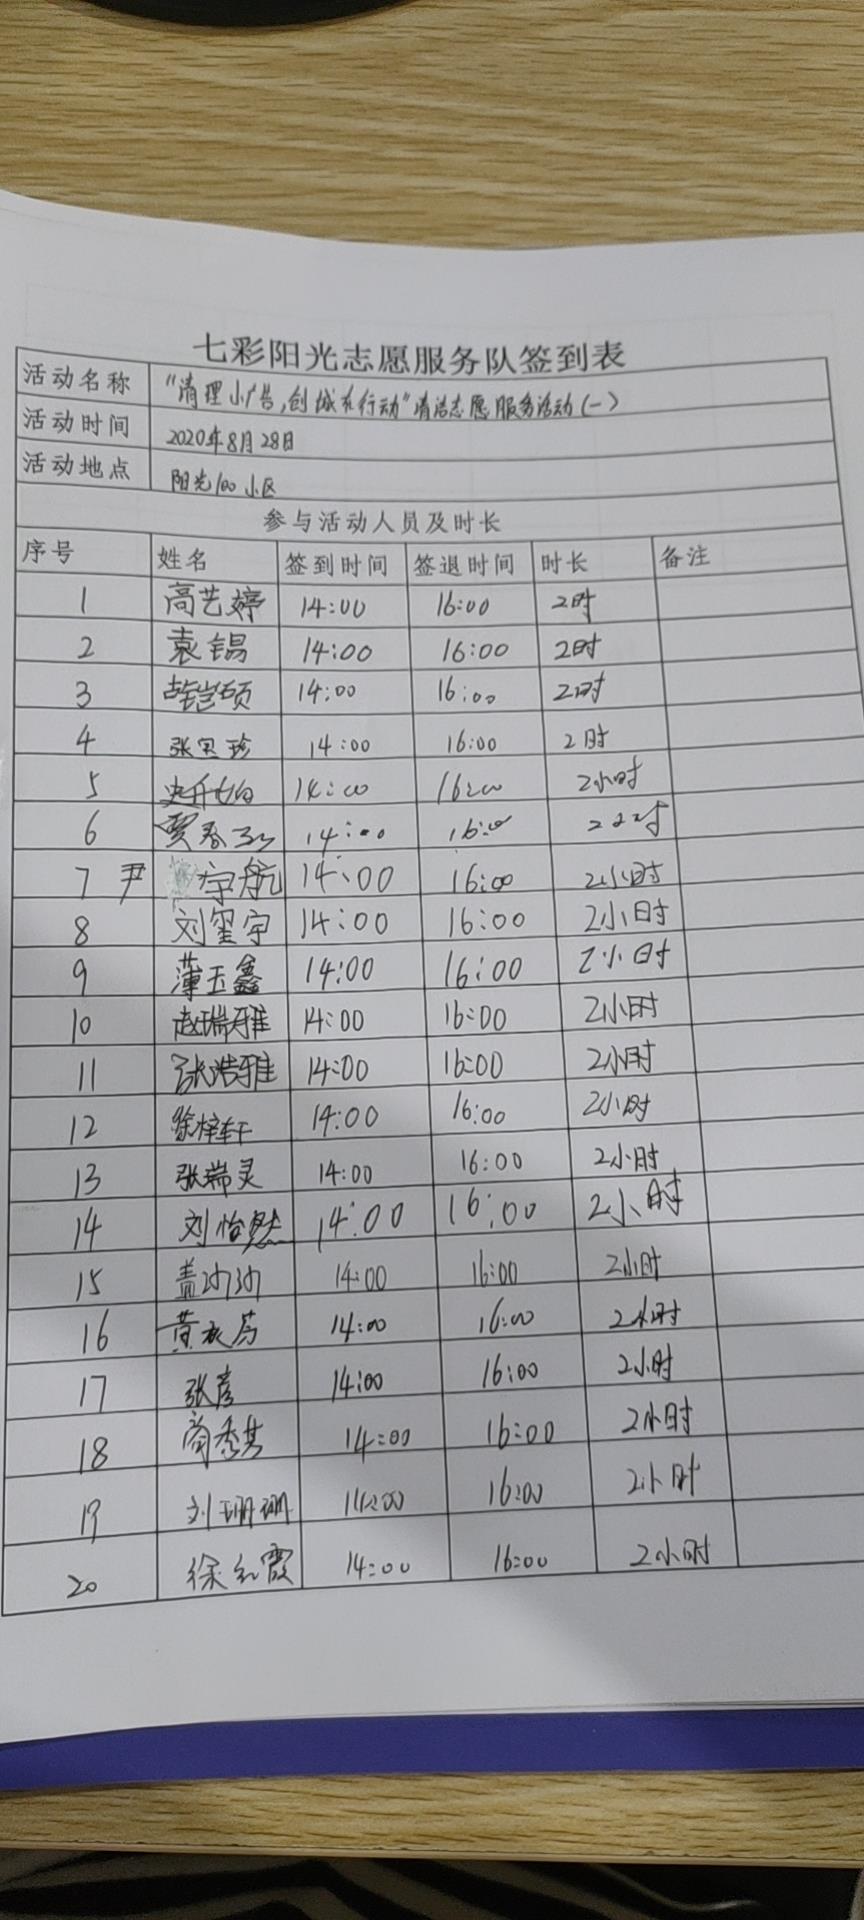 七彩阳光志愿服务队签到表
活动名称 "清理小广告,创城在行动"清洁志愿服务活动(一)
活动时间 2020年8月28日
活动地点 阳光100小区
参与活动人员及时长
序号 姓名 签到时间 签退时间 时长 备注
1 高艺婷 14:00 16:00 2时
2 袁锡 14:00 16:00 2时
3 14:00 16:00 2时
4 张宝珍 14:00 16:00 2时
5 14:00 16:00 2小时
6 贾春 14:00 16:00 2小时
7 尹宇航 14:00 16:00 2小时
8 刘玺宇 14:00 16:00 2小时
9 薄玉鑫 14:00 16:00 2小时
10 赵瑞雅 14:00 16:00 2小时
11 张浩雅 14:00 16:00 2小时
12 徐梓轩 14:00 16:00 2小时
13 张瑞灵 14:00 16:00 2小时
14 刘怡然 14:00 16:00 2小时
15 盖沙沙 14:00 16:00 2小时
16 黄 14:00 16:00 2小时
17 张彦 14:00 16:00 2小时
18 商秀其 14:00 16:00 2小时
19 刘珊珊 14:00 16:00 2小时
20 徐红霞 14:00 16:00 2小时